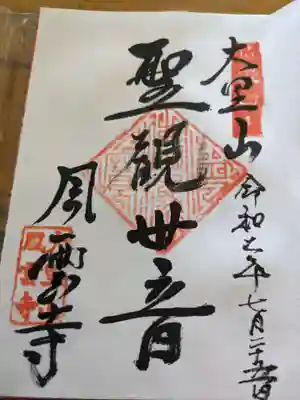 大黒山
令和七年七月二十五日
聖観世音
風雲寺